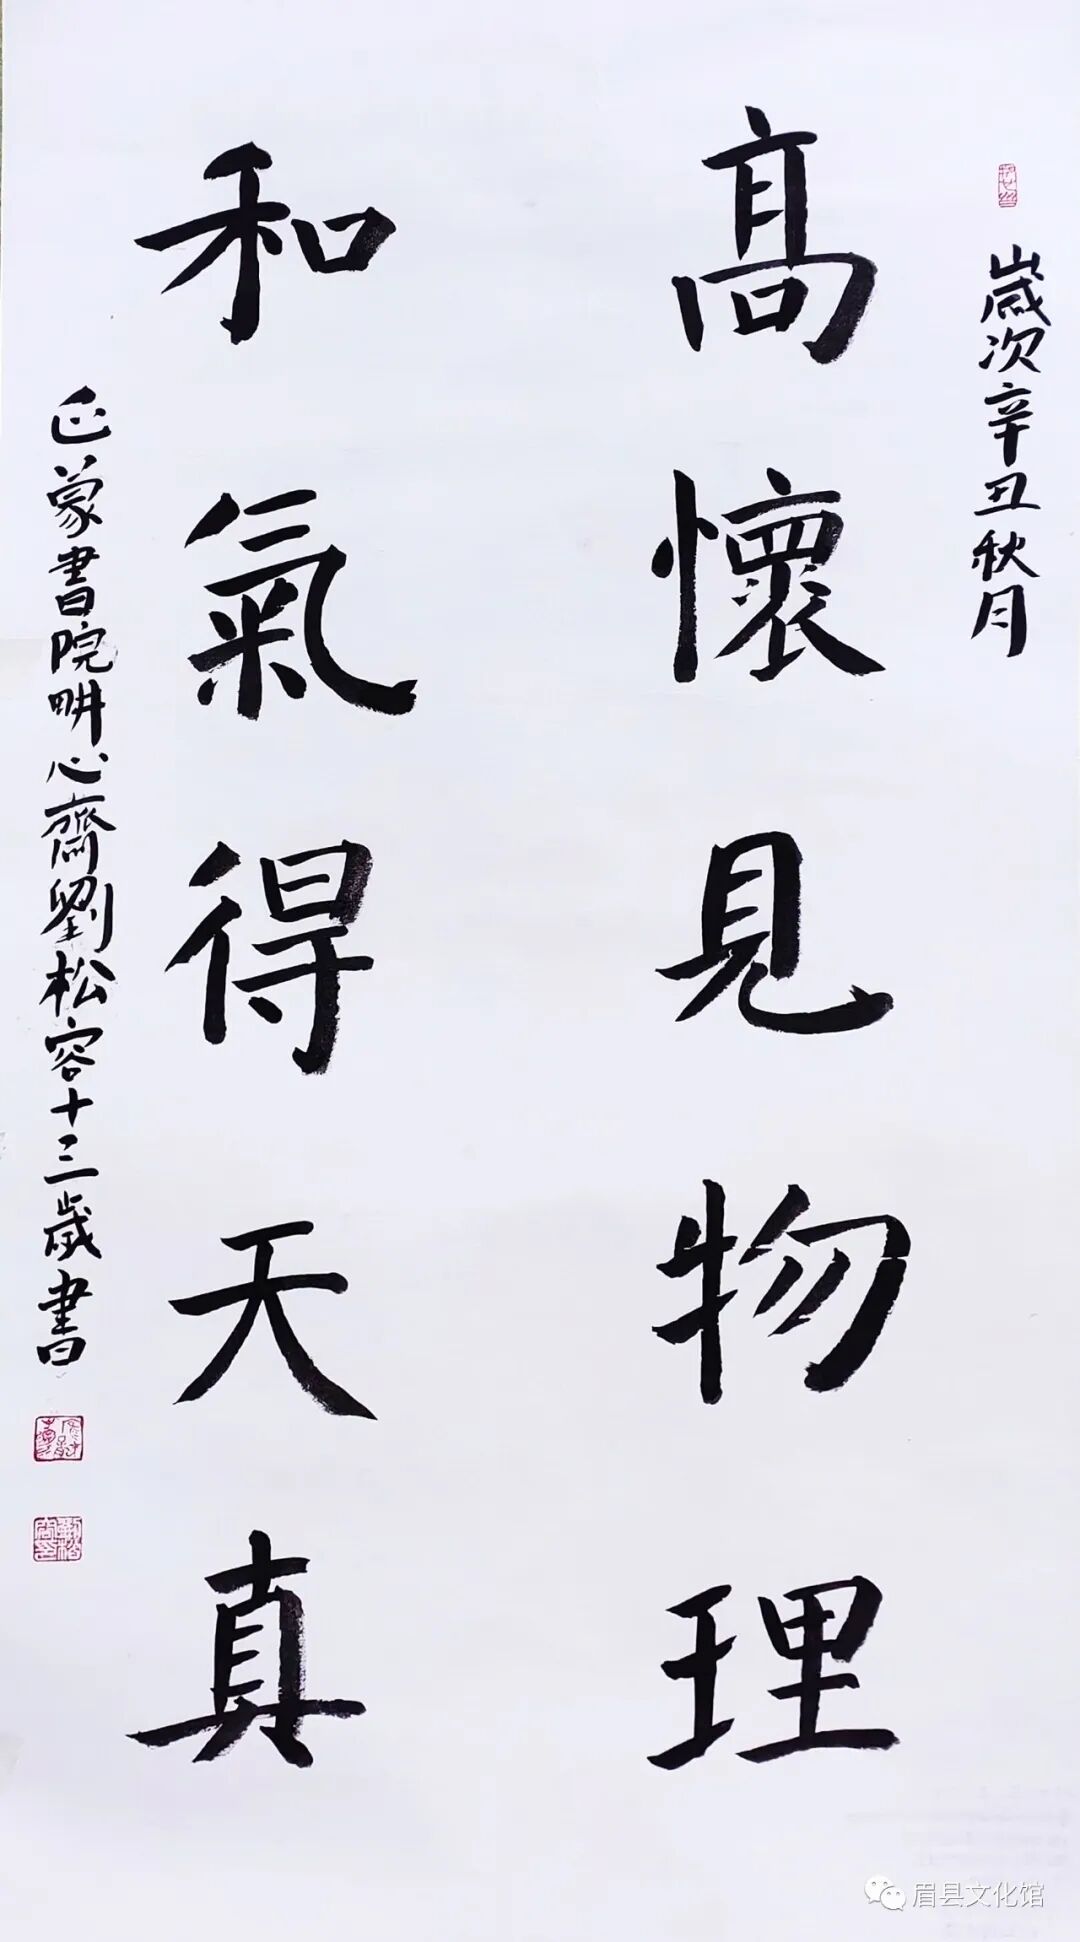 歲次辛丑秋月
高懷見物理
和氣得天真
正蒙書院畊心齋劉松容十三歲書
眉县文化馆